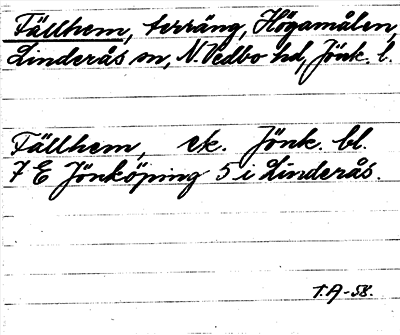 Fällhem, terräng, Högamålen,
Linderås sn, N. Vedbo hd, Jönk. l.
Fällhem, ek. Jönk. bl.
7 E Jönköping 5 i Linderås.
T.A-58.